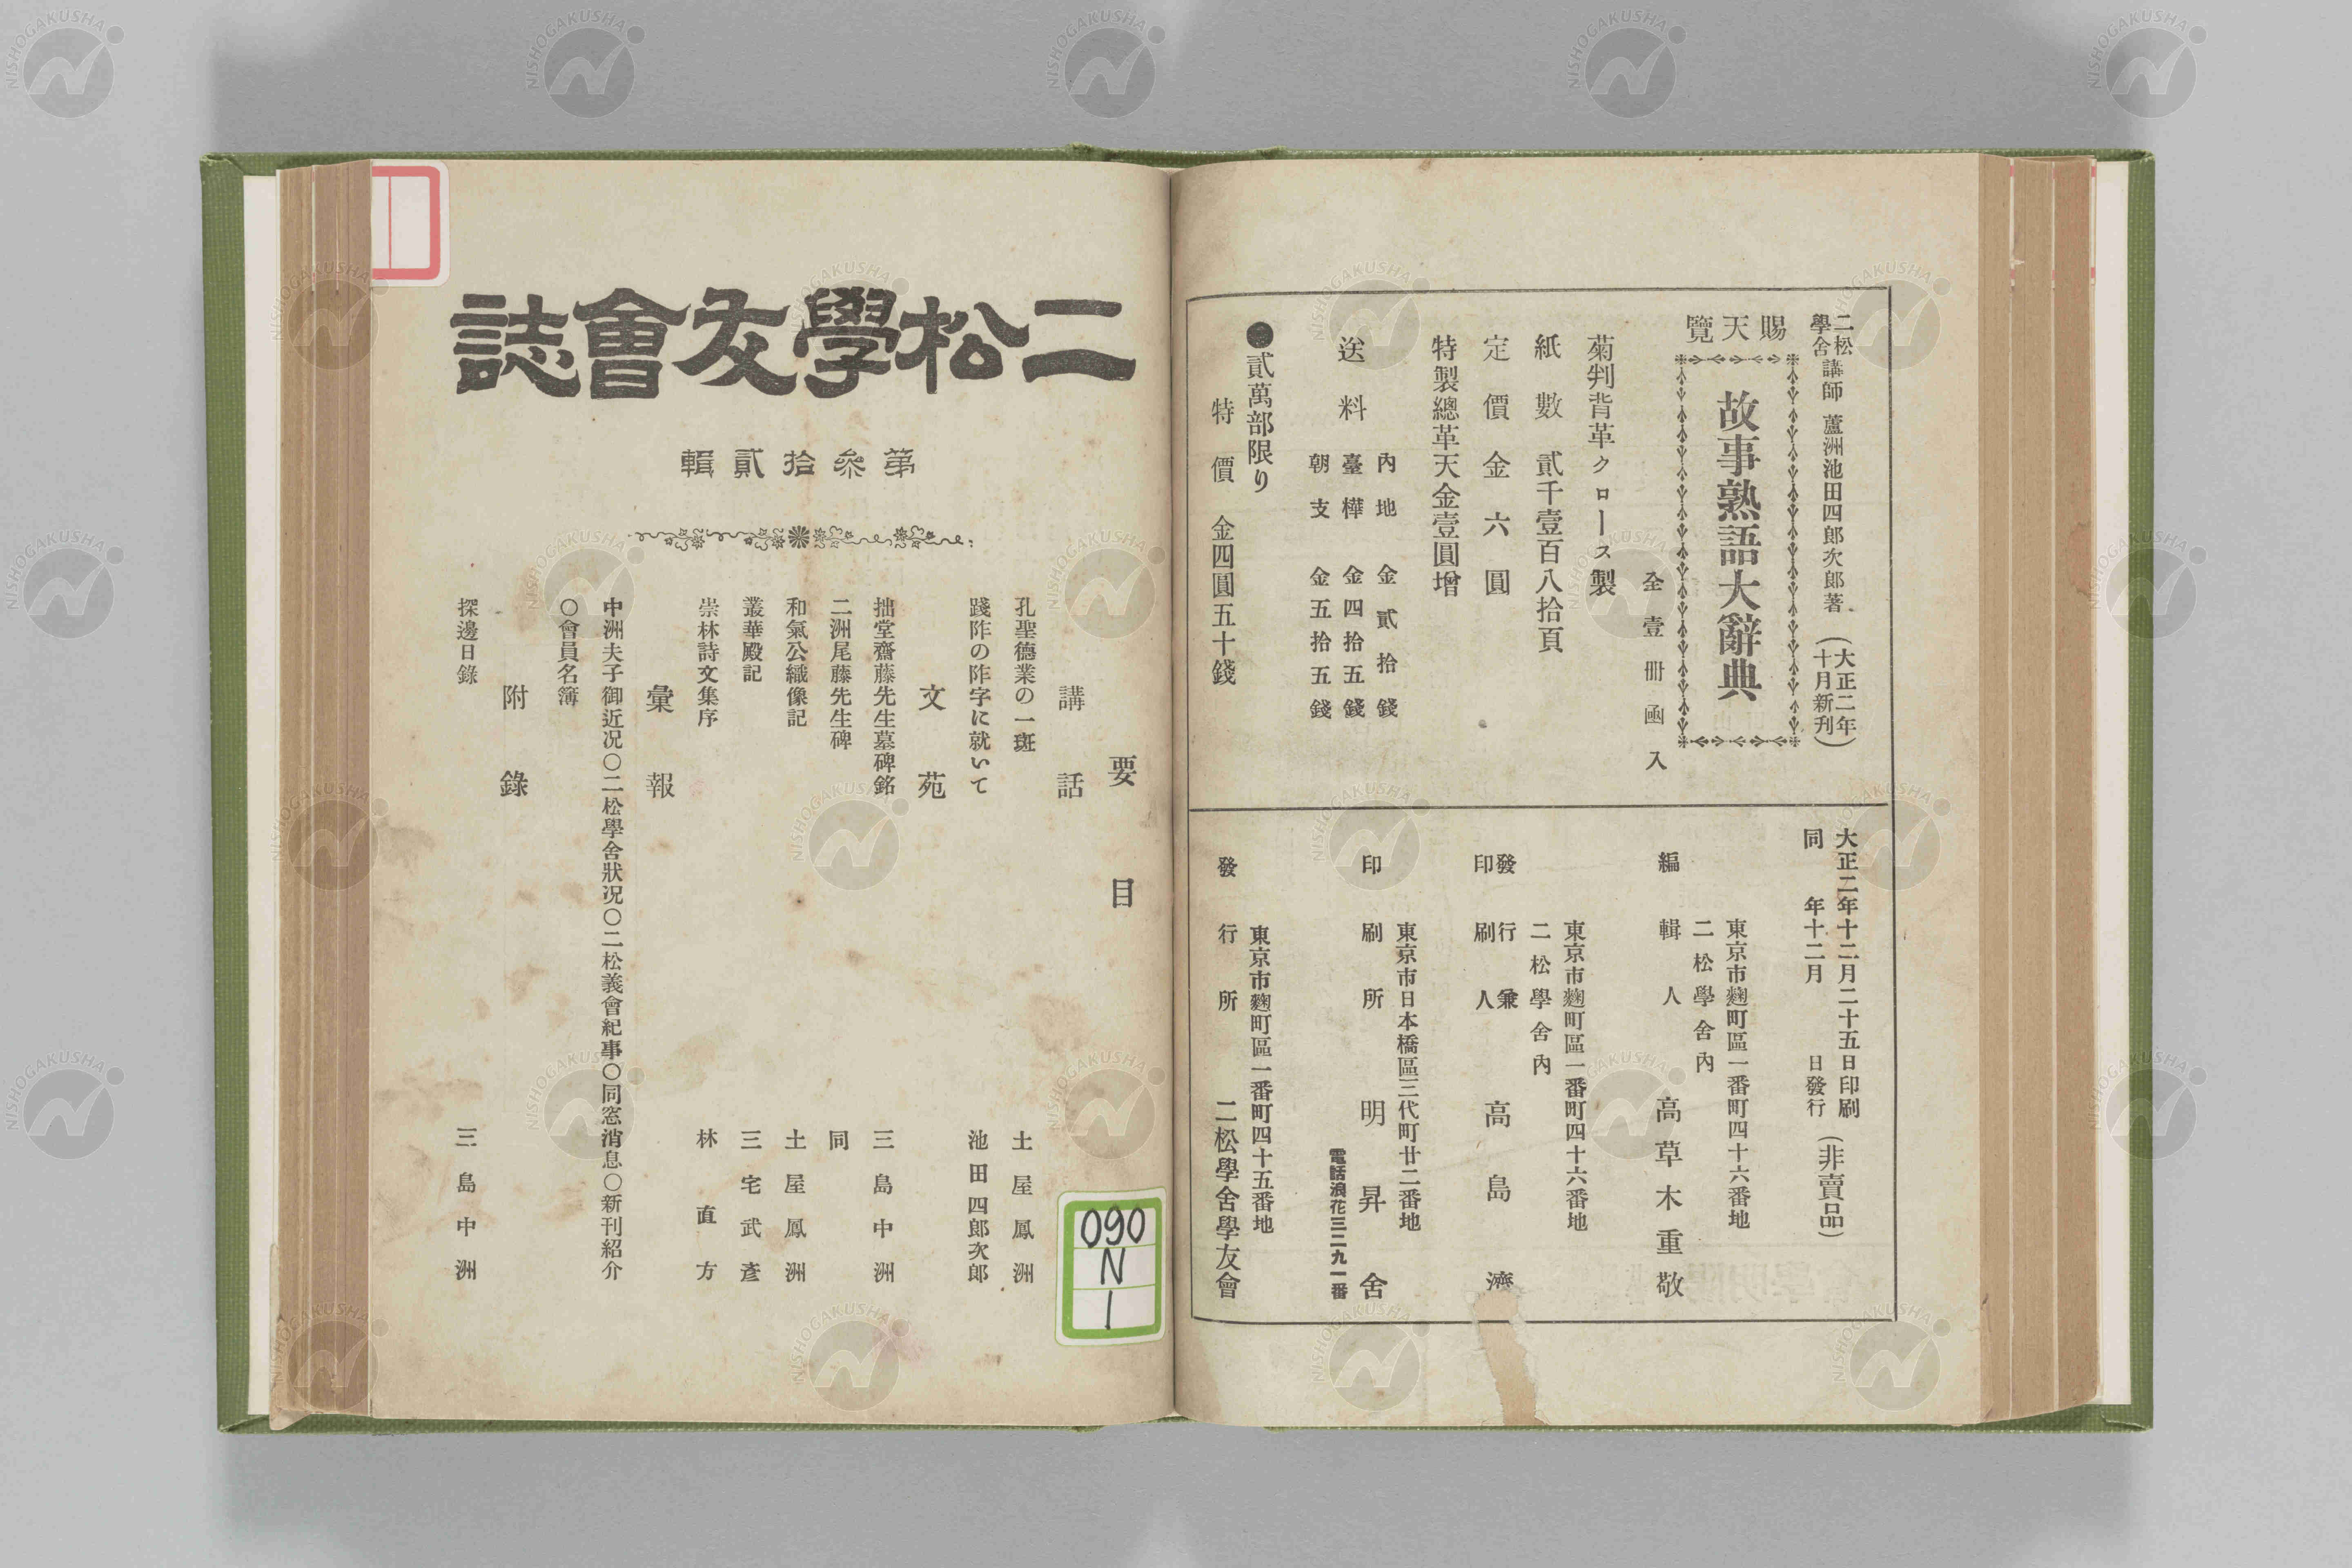 二松學舍講師 蘆洲池田四郎次郎著 (大正二年十月新刊)
賜天覽
故事熟語大辭典
全壹冊函入
菊判背革クロース製
紙數 貳千壹百八拾頁
定價金六圓
特製總革天金壹圓增
送料
內地 金貳拾錢
臺樺 金四拾五錢
朝支 金五拾五錢
●貳萬部限り
特價 金四圓五十錢
大正二年十二月二十五日印刷
同 年十二月 日發行
(非賣品)
東京市麴町區一番町四十六番地
二松學舍內
編輯人 高草木重敬
東京市麴町區一番町四十六番地
二松學舍內
發行兼印刷人 高島濟
東京市日本橋區三代町廿二番地
印刷所 明昇舍
電話浪花三二九一番
東京市麴町區一番町四十五番地
發行所 二松學舍學友會
二松學友會誌
第參拾貳輯
要目
講話
孔聖德業の一斑 土屋鳳洲
踐阼の阼字に就いて 池田四郎次郎
文苑
拙堂齋藤先生墓碑銘 三島中洲
二洲尾藤先生碑 同
和氣公織像記 土屋鳳洲
叢華殿記 三宅武彥
崇林詩文集序 林直方
彙報
中洲夫子御近况〇二松學舍狀况〇二松義會紀事〇同窓消息〇新刊紹介
〇會員名簿
附錄
探邊日錄 三島中洲
090
N
1
NISHOGAKUSHA